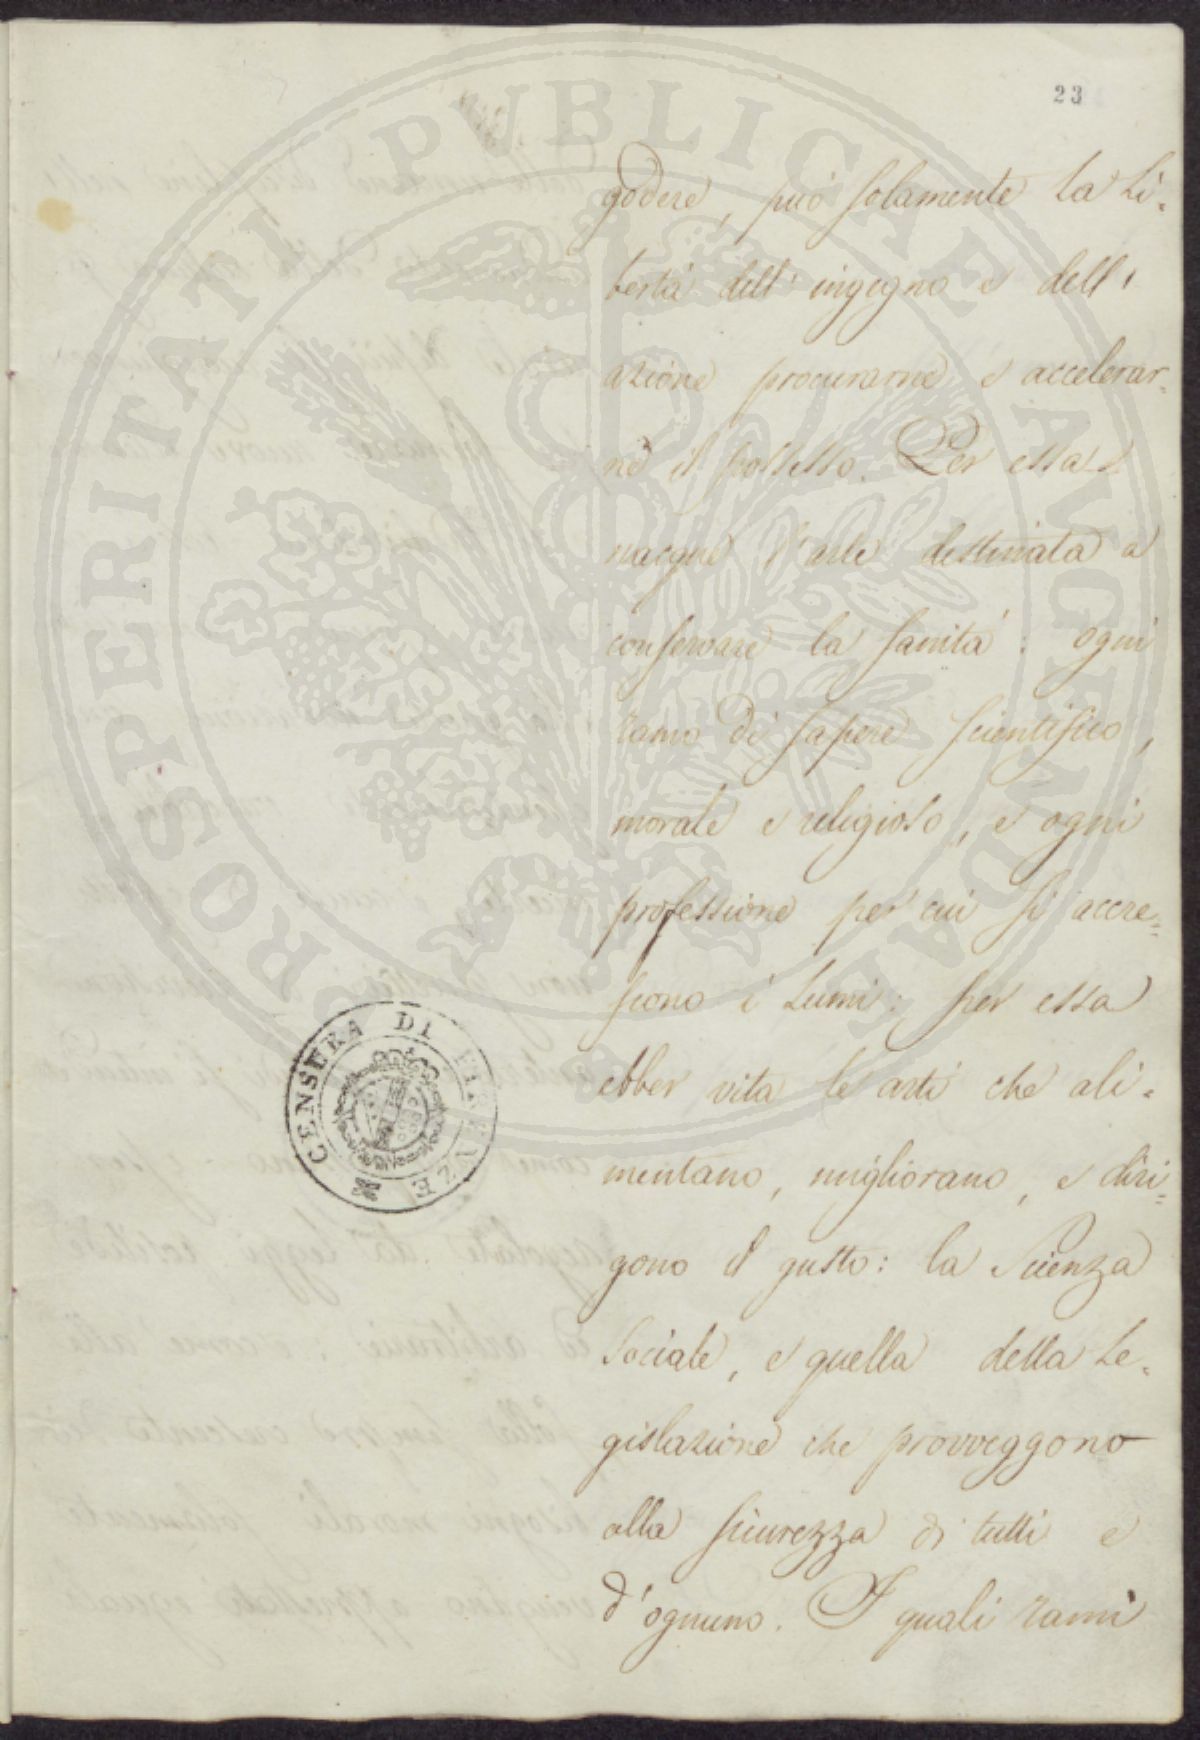 23
godere, può solamente la Li-
bertà dell' ingegno e dell'
azione procurarne e accelerar-
ne il possesso. Per essa
nacque l'arte destinata a
conservare la sanità: ogni
ramo di sapere scientifico,
morale e religioso, e ogni
professione per cui si accre-
scono i Lumi: per essa
ebber vita le arti che ali-
mentano, migliorano, e diri-
gono il gusto: la Scienza
Sociale, e quella della Le-
gislazione che provveggono
alla sicurezza di tutti e
d'ognuno. I quali rami
CENSURA DI FIRENZE
PROSPERITATI PVBLICAE AVGENDAE